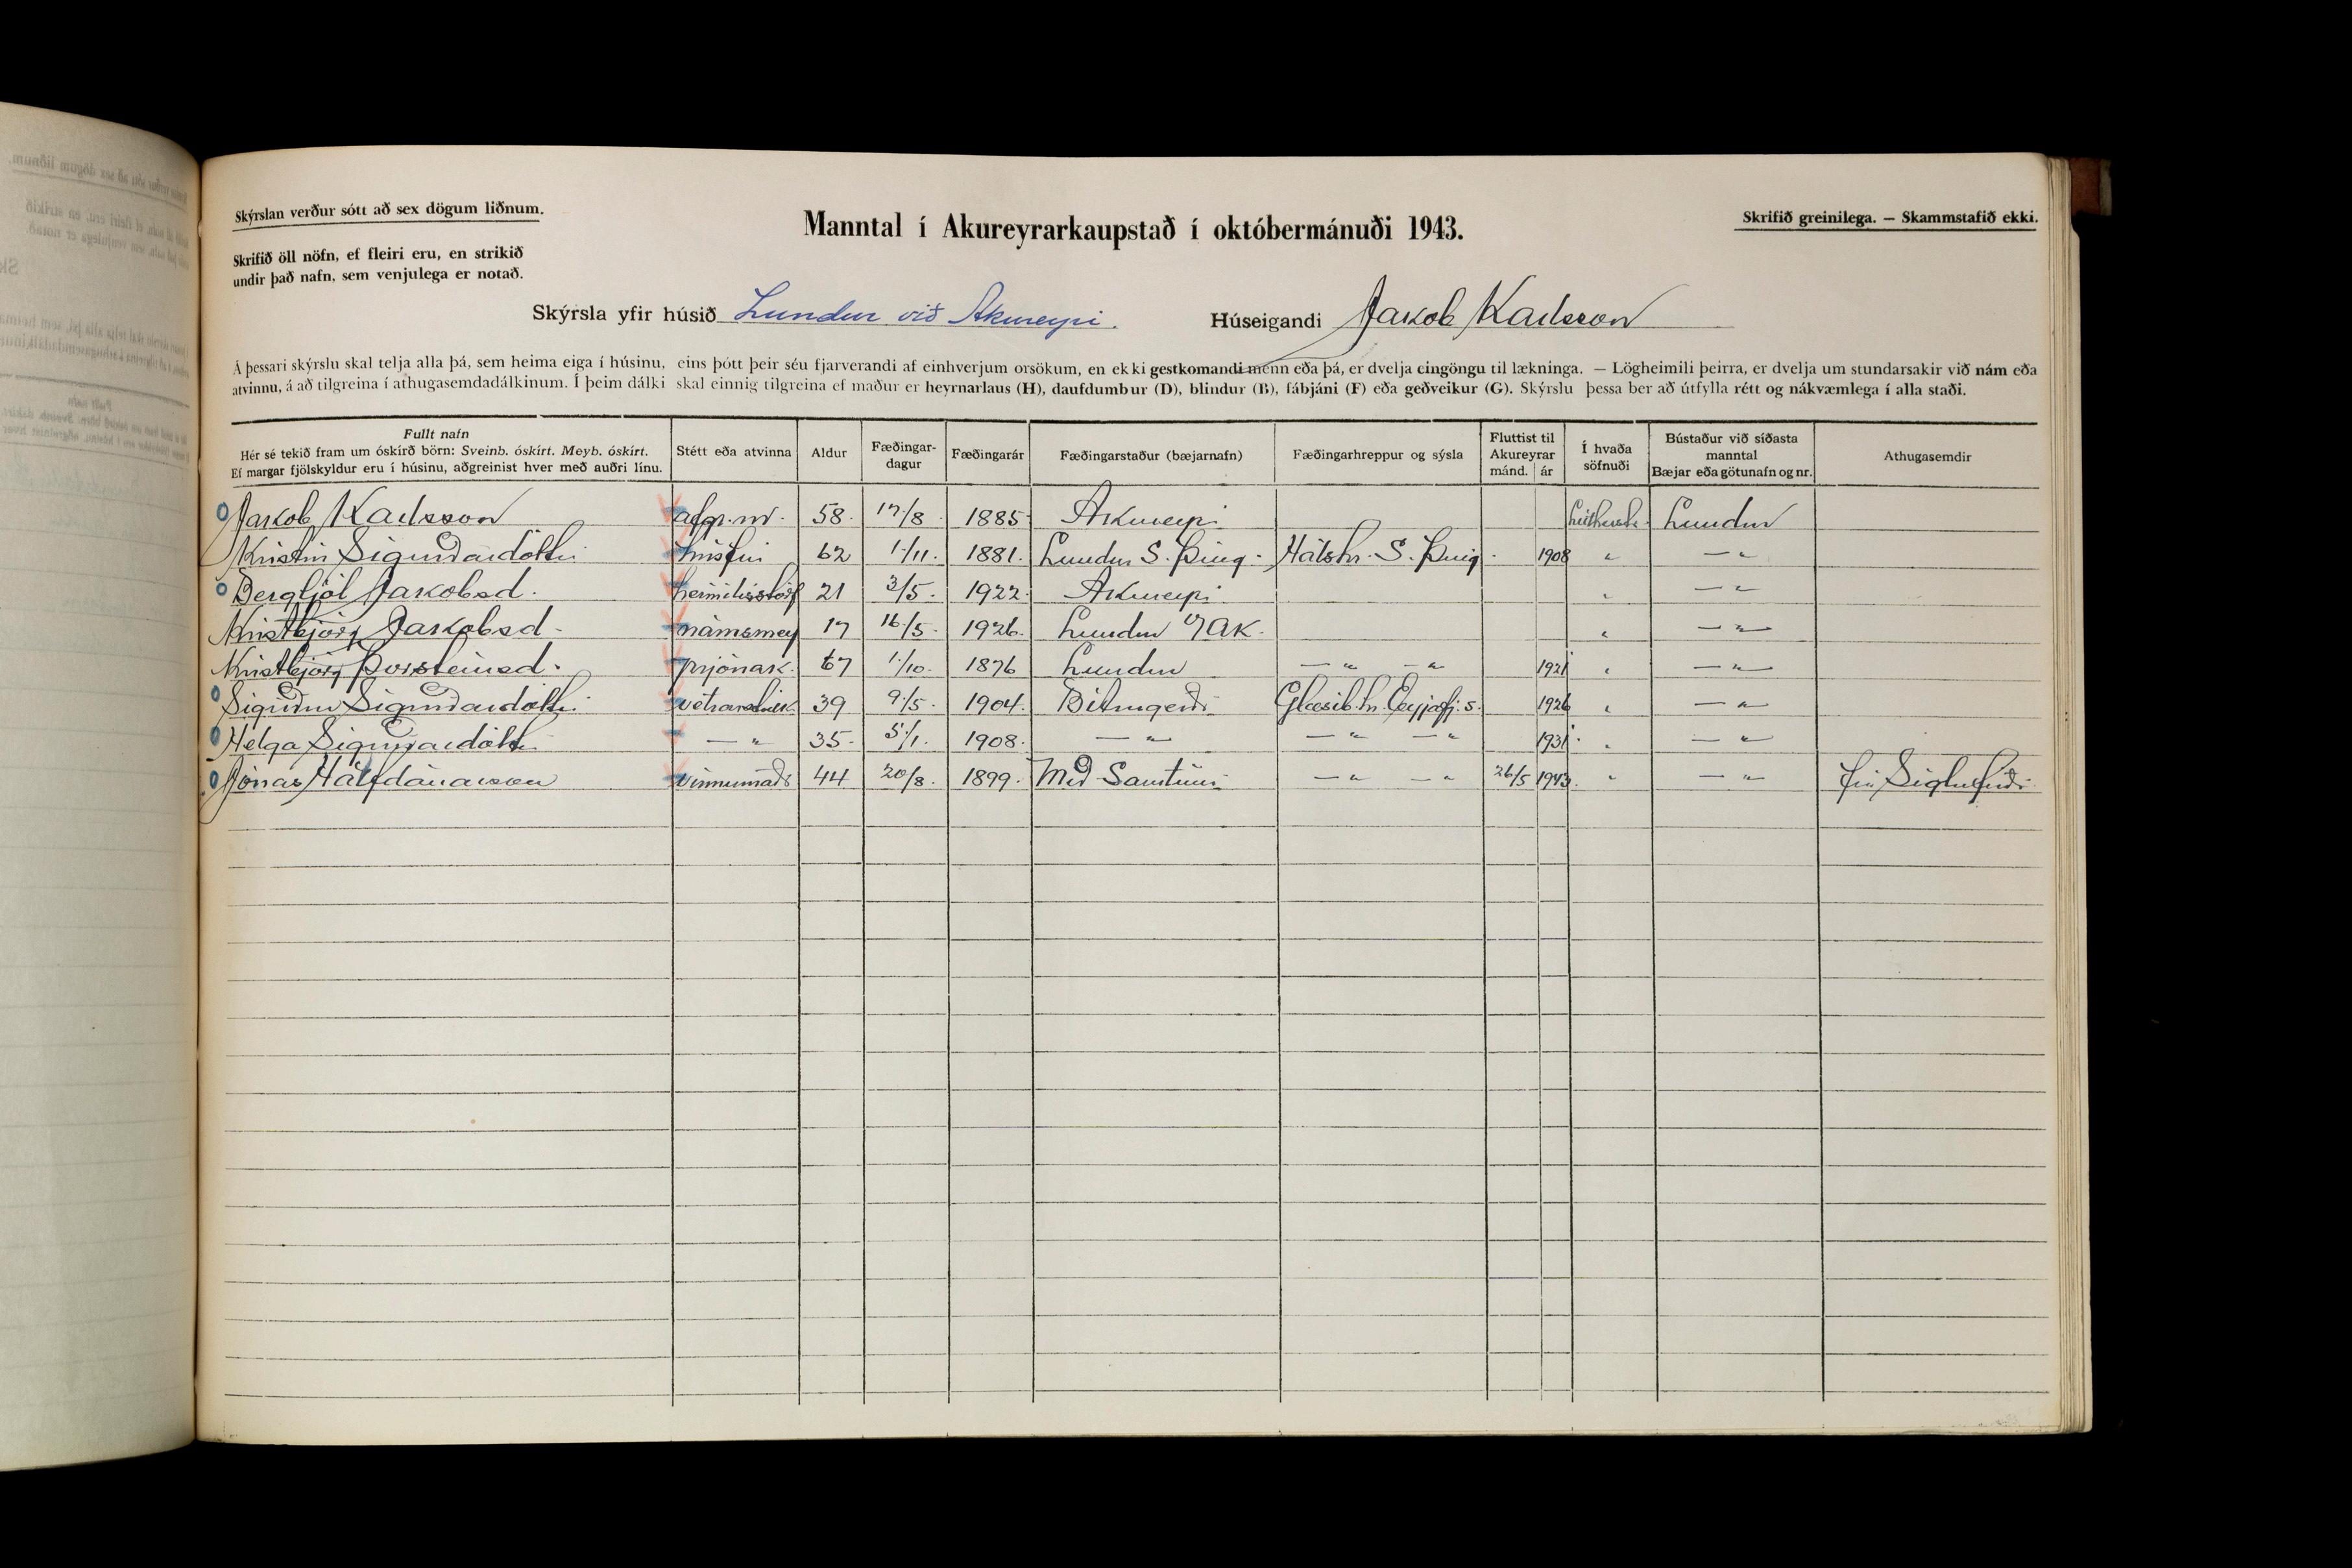 Skýrslan verður sótt að sex dögum liðnum.
Manntal í Akureyrarkaupstað í októbermánuði 1943.
Skrifið greinilega. — Skammstafið ekki.
Skrifið öll nöfn, ef fleiri eru, en strikið
undir það nafn, sem venjulega er notað.
Skýrsla yfir húsið Lundur við Akureyri. Húseigandi Jakob Karlsson
Á þessari skýrslu skal telja alla þá, sem heima eiga í húsinu, eins þótt þeir séu fjarverandi af einhverjum orsökum, en ekki gestkomandi menn eða þá, er dvelja eingöngu til lækninga. — Lögheimili þeirra, er dvelja um stundarsakir við nám eða
atvinnu, á að tilgreina í athugasemdadálkinum. Í þeim dálki skal einnig tilgreina ef maður er heyrnarlaus (H), daufdumbur (D), blindur (B), fábjáni (F) eða geðveikur (G). Skýrslu þessa ber að útfylla rétt og nákvæmlega í alla staði.
Fullt nafn
Hér sé tekið fram um óskírð börn: Sveinb. óskírt. Meyb. óskírt.
Ef margar fjölskyldur eru í húsinu, aðgreinist hver með auðri línu.
Stétt eða atvinna
Aldur
Fæðingar-
dagur
Fæðingarár
Fæðingarstaður (bæjarnafn)
Fæðingarhreppur og sýsla
Fluttist til
Akureyrar
mánd. ár
Í hvaða
söfnuði
Bústaður við síðasta
manntal
Bæjar eða götunafn og nr.
Athugasemdir
Jakob Karlsson afgr.m. 58. 17/8. 1885 Akureyri Lundur
Kristín Sigurðardóttir húsfrú 62 1/11. 1881. Lundur S. Þing. Hálshr. S. Þing. 1908 " — "
Bergljót Jakobsd. heimilisstörf 21 3/5. 1922. Akureyri " — "
Kristbjörg Jakobsd. námsmey 17 16/5. 1926. Lundur v/Ak. " — "
Kristbjörg Þorsteinsd. prjónak. 67 1/10. 1876 Lundur — " — " 1921 " — "
Sigurðardóttir 39 9/5. 1904. Glæsib.hr. Eyjafj.s. 1926 " — "
Helga Sigurjónsdóttir — " 35. 5/1. 1908. — " — " — " 1931 " — "
Jónas Hálfdánarson vinnumaðr 44 20/8. 1899. Mið-Samtúni — " — " 26/5 1943. " — " frá Siglufirði